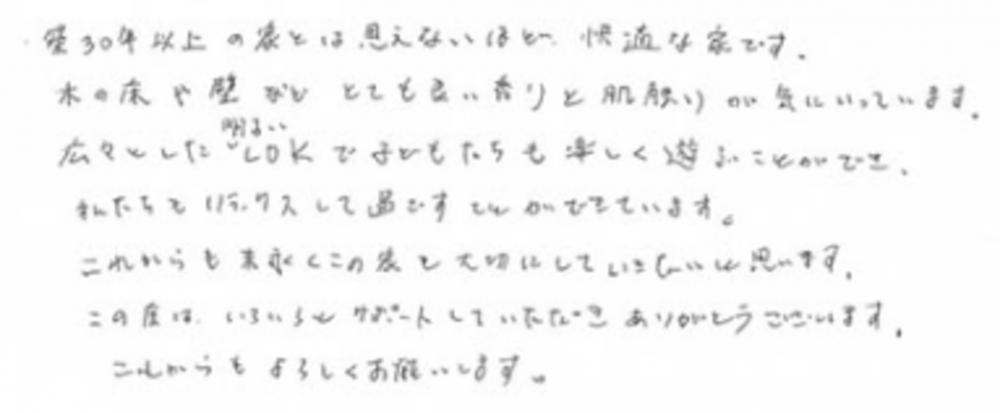 築30年以上の家とは思えないほど、快適な家です。
木の床や壁など とても良い香りと肌触りが気にいっています。
広々とした明るいLDKで子どもたちも楽しく遊ぶことができ、
私たちもリラックスして過ごすことができています。
これからも末永くこの家を大切にしていきたいと思います。
この度は、いろいろとサポートしていただき ありがとうございます。
これからもよろしくお願いします。